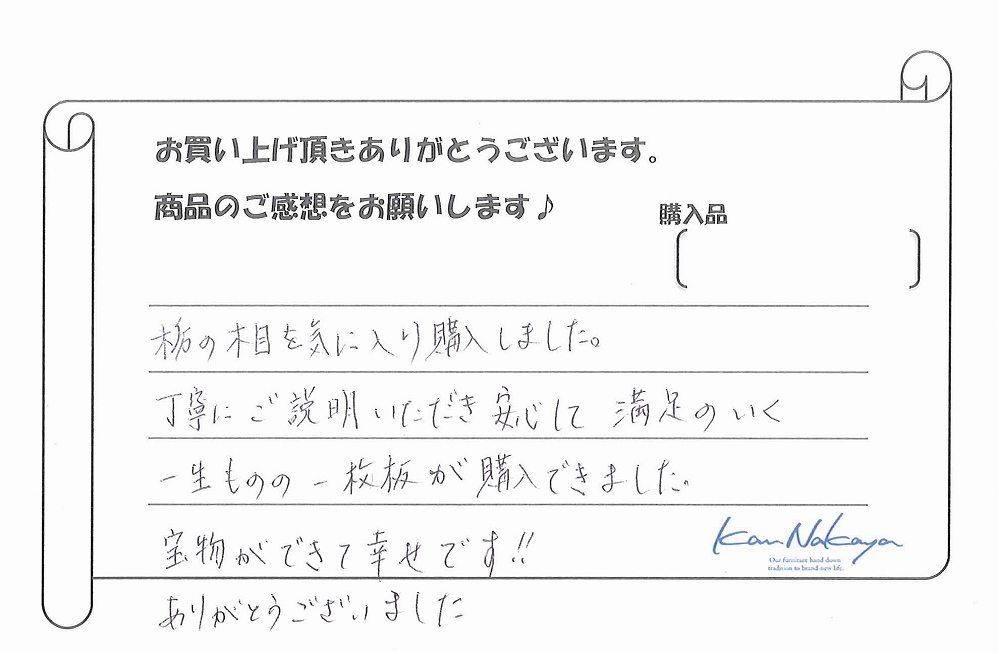 お買い上げ頂きありがとうございます。
商品のご感想をお願いします♪
購入品
栃の木目を気に入り購入しました。
丁寧にご説明いただき安心して 満足のいく
一生ものの 一枚板が購入できました。
宝物ができて幸せです!!
ありがとうございました
Kan Nakaya
Our furniture hand down
tradition to brand-new life.